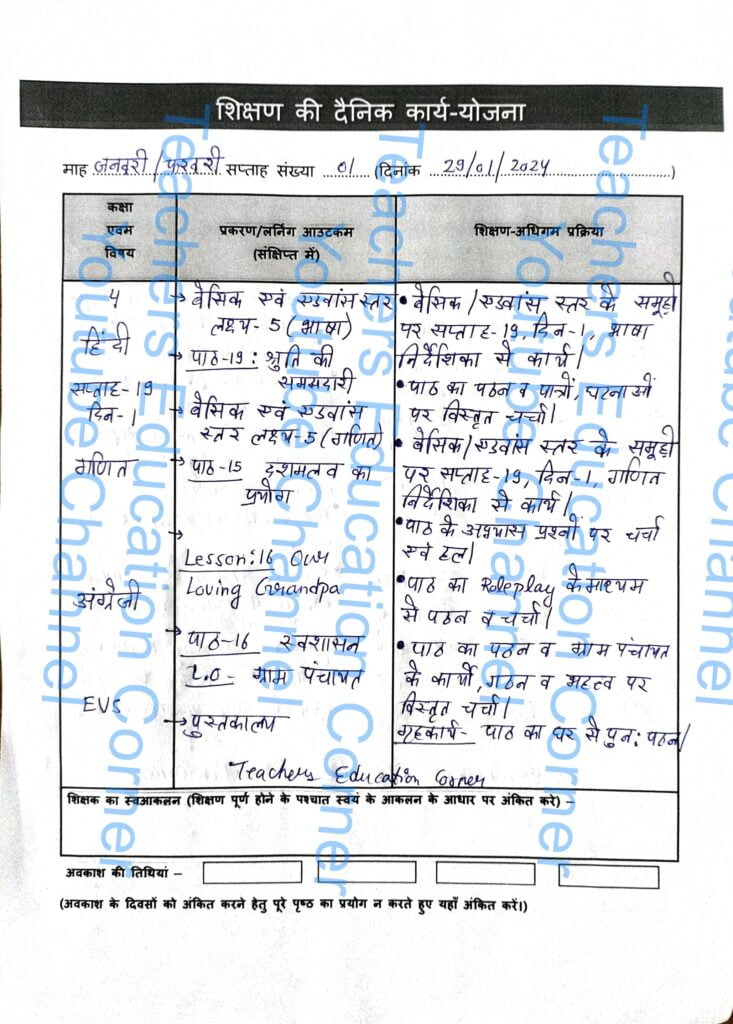 शिक्षण की दैनिक कार्य-योजना
माह जनवरी / फरवरी सप्ताह संख्या 01 (दिनांक 29/01/2024)
कक्षा
एवम
विषय
प्रकरण/लर्निंग आउटकम
(संक्षिप्त में)
शिक्षण-अधिगम प्रक्रिया
4
हिंदी
सप्ताह-19
दिन-1
→ बेसिक एवं एडवांस स्तर
लक्ष्य-5 (भाषा)
→ पाठ-19: श्रुति की
समझदारी
• बेसिक/एडवांस स्तर के समूहों
पर सप्ताह-19, दिन-1, भाषा
निर्देशिका से कार्य।
• पाठ का पठन व पात्रों, घटनाओं
पर विस्तृत चर्चा।
गणित
→ बेसिक एवं एडवांस
स्तर लक्ष्य-5 (गणित)
→ पाठ-15 दशमलव का
प्रयोग
• बेसिक/एडवांस स्तर के समूहों
पर सप्ताह-19, दिन-1, गणित
निर्देशिका से कार्य।
• पाठ के अभ्यास प्रश्नों पर चर्चा
एवं हल।
अंग्रेजी
→
Lesson:16 Our
Loving Grandpa
• पाठ का Roleplay के माध्यम
से पठन व चर्चा।
EVS
→ पाठ-16 स्वशासन
L.O- ग्राम पंचायत
→ पुस्तकालय
• पाठ का पठन व ग्राम पंचायत
के कार्यों, गठन व महत्व पर
विस्तृत चर्चा।
गृहकार्य- पाठ का घर से पुन: पठन।
Teachers Education Corner
शिक्षक का स्वआकलन (शिक्षण पूर्ण होने के पश्चात स्वयं के आकलन के आधार पर अंकित करे) –
अवकाश की तिथियां –
(अवकाश के दिवसों को अंकित करने हेतु पूरे पृष्ठ का प्रयोग न करते हुए यहाँ अंकित करें।)
Teachers Education Corner
Youtube Channel
Teachers Education Corner
Youtube Channel
Teachers Education Corner
Youtube Channel